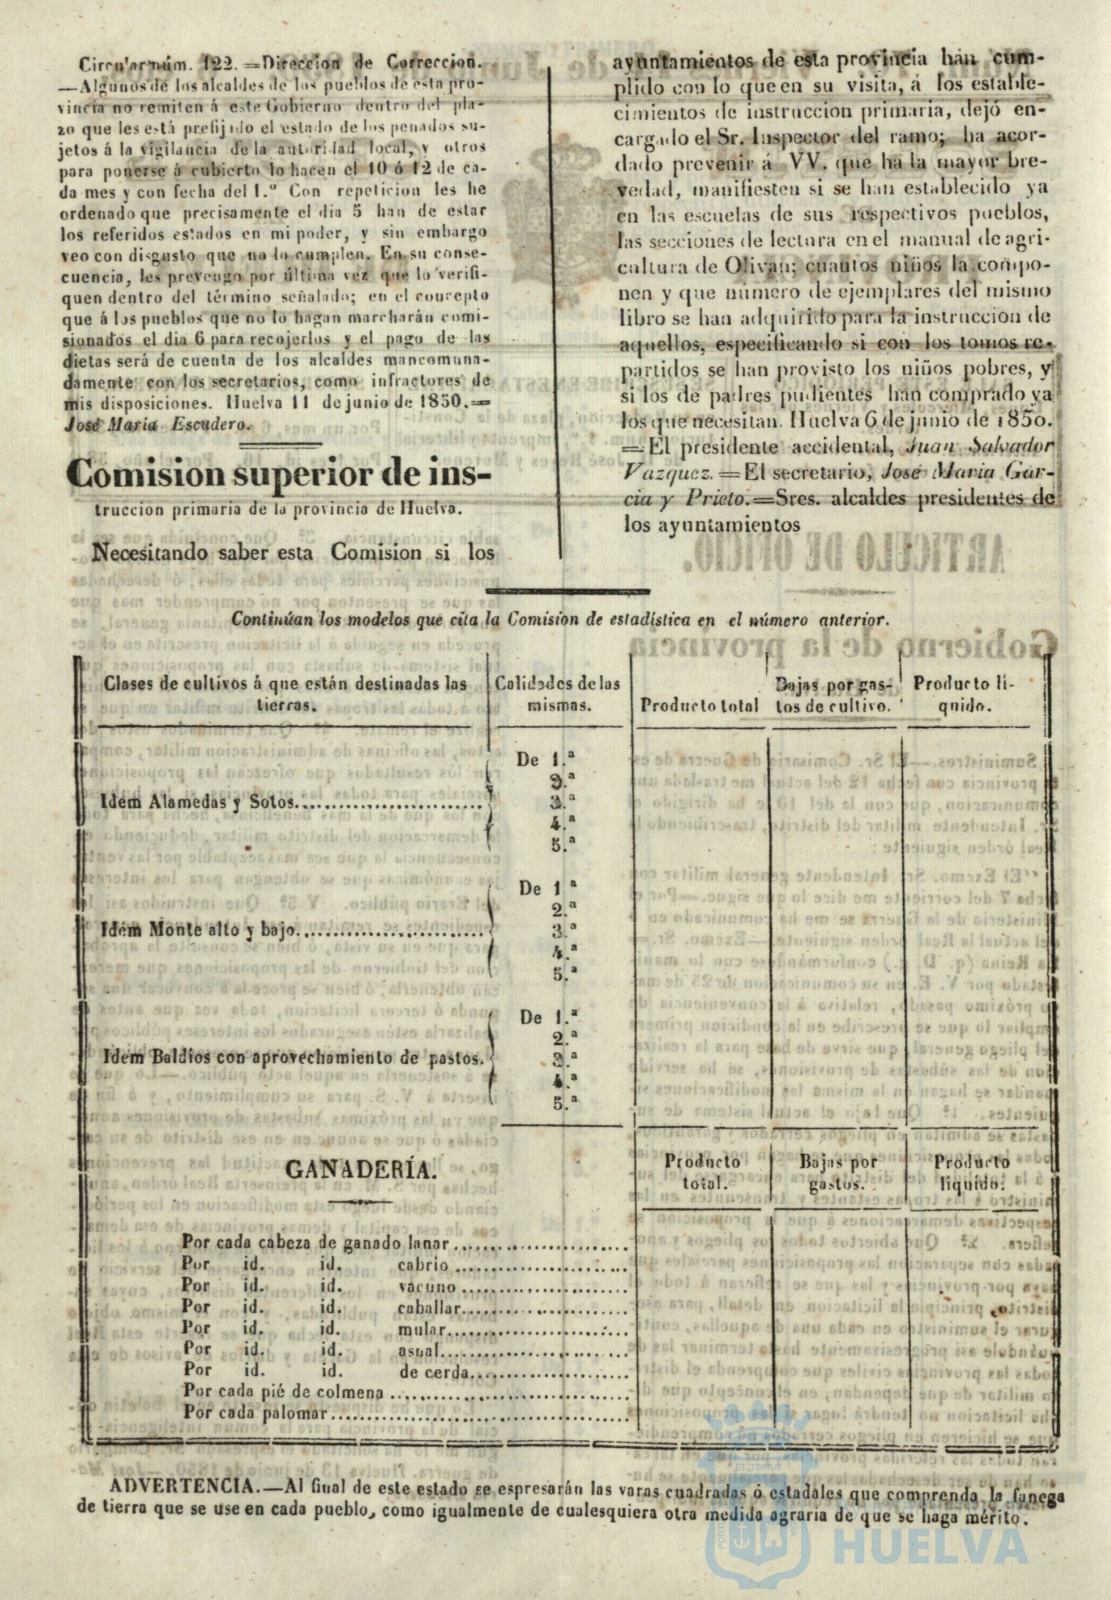 Circular núm. 122.=Direccion de Correccion.
—Algunos de los alcaldes de los pueblos de esta pro-
vincia no remiten á este Gobierno dentro del pla-
zo que les está prefijado el estado de los penados su-
jetos á la vigilancia de la autoridad local, y otros
para ponerse á cubierto lo hacen el 10 ó 12 de ca-
da mes y con fecha del 1.º Con repeticion les he
ordenado que precisamente el dia 5 han de estar
los referidos estados en mi poder, y sin embargo
veo con disgusto que no lo cumplen. En su conse-
cuencia, les prevengo por última vez que lo verifi-
quen dentro del término señalado; en el concepto
que á los pueblos que no lo hagan marcharán comi-
sionados el dia 6 para recojerlos y el pago de las
dietas será de cuenta de los alcaldes mancomuna-
damente con los secretarios, como infractores de
mis disposiciones. Huelva 11 de junio de 1850.=
José Maria Escudero.
Comision superior de ins-
truccion primaria de la provincia de Huelva.
Necesitando saber esta Comision si los
ayuntamientos de esta provincia han cum-
plido con lo que en su visita, á los estable-
cimientos de instruccion primaria, dejó en-
cargado el Sr. Inspector del ramo; ha acor-
dado prevenir á VV. que ha la mayor bre-
vedad, manifiesten si se han establecido ya
en las escuelas de sus respectivos pueblos,
las secciones de lectura en el manual de agri-
cultura de Olivan; cuantos niños la compo-
nen y que número de ejemplares del mismo
libro se han adquirido para la instruccion de
aquellos, especificando si con los tomos re-
partidos se han provisto los niños pobres, y
si los de padres pudientes han comprado ya
los que necesitan. Huelva 6 de junio de 1850.
=El presidente accidental, Juan Salvador
Vazquez.=El secretario, José Maria Gar-
cia y Prieto.=Sres. alcaldes presidentes de
los ayuntamientos
Continúan los modelos que cita la Comision de estadística en el número anterior.
Clases de cultivos á que están destinadas las
tierras.
Calidades de las
mismas.
Producto total
Bajas por gas-
tos de cultivo.
Producto lí-
quido.
De 1.ª
2.ª
Idem Alamedas y Sotos........................ 3.ª
4.ª
5.ª
De 1.ª
2.ª
Idem Monte alto y bajo........................ 3.ª
4.ª
5.ª
De 1.ª
2.ª
Idem Baldíos con aprovechamiento de pastos. 3.ª
4.ª
5.ª
GANADERÍA.
Producto
total.
Bajas por
gastos.
Producto
líquido.
Por cada cabeza de ganado lanar........................
Por id. id. cabrio........................
Por id. id. vacuno........................
Por id. id. caballar........................
Por id. id. mular........................
Por id. id. asnal........................
Por id. id. de cerda........................
Por cada pié de colmena........................
Por cada palomar........................
ADVERTENCIA.—Al final de este estado se espresarán las varas cuadradas ó estadales que comprenda la fanega
de tierra que se use en cada pueblo, como igualmente de cualesquiera otra medida agraria de que se haga mérito.
HUELVA